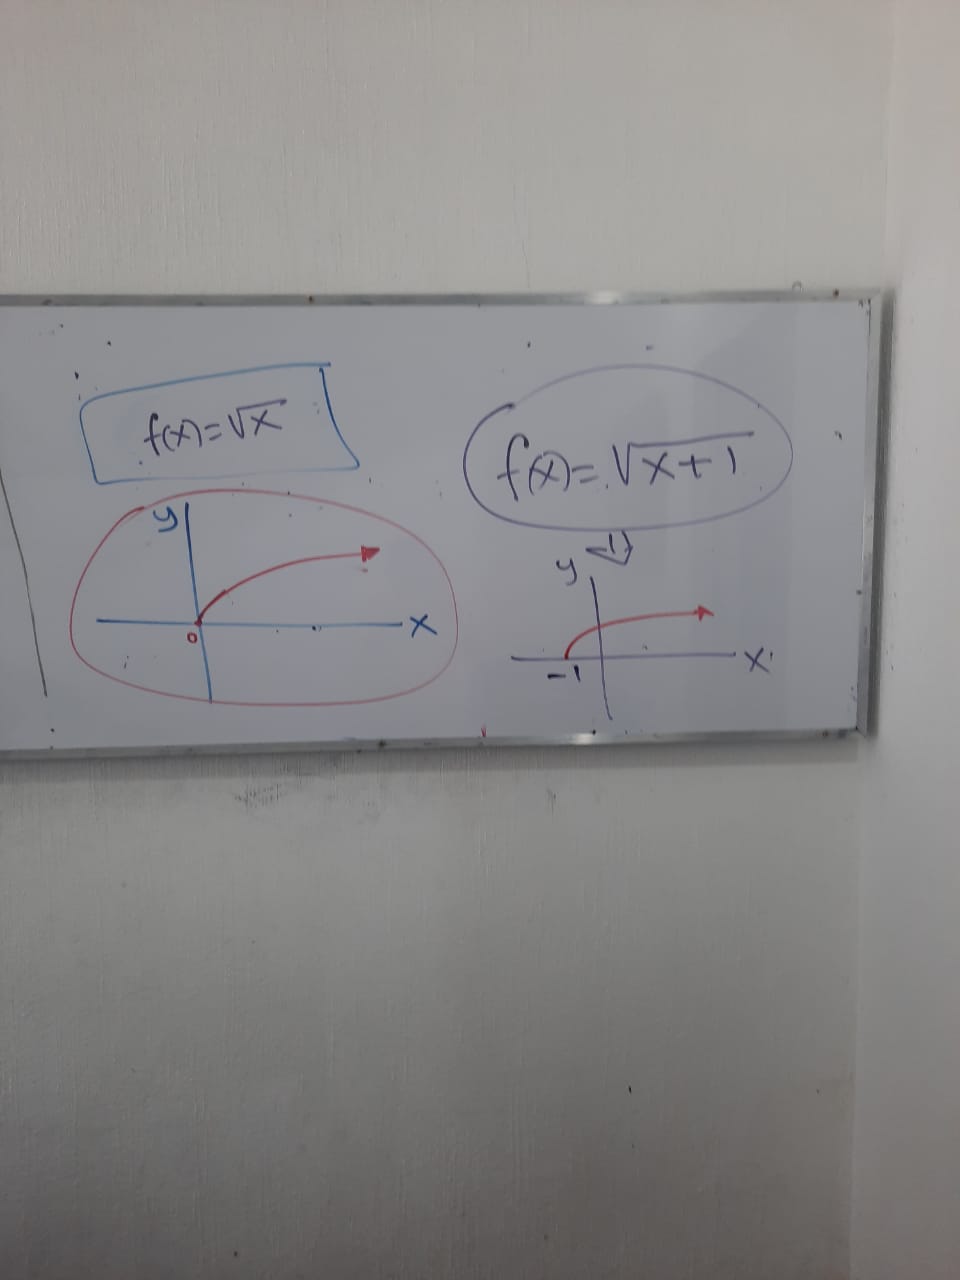 f(x)=√x
y
0
x
f(x)=√x+1
y
-1
x